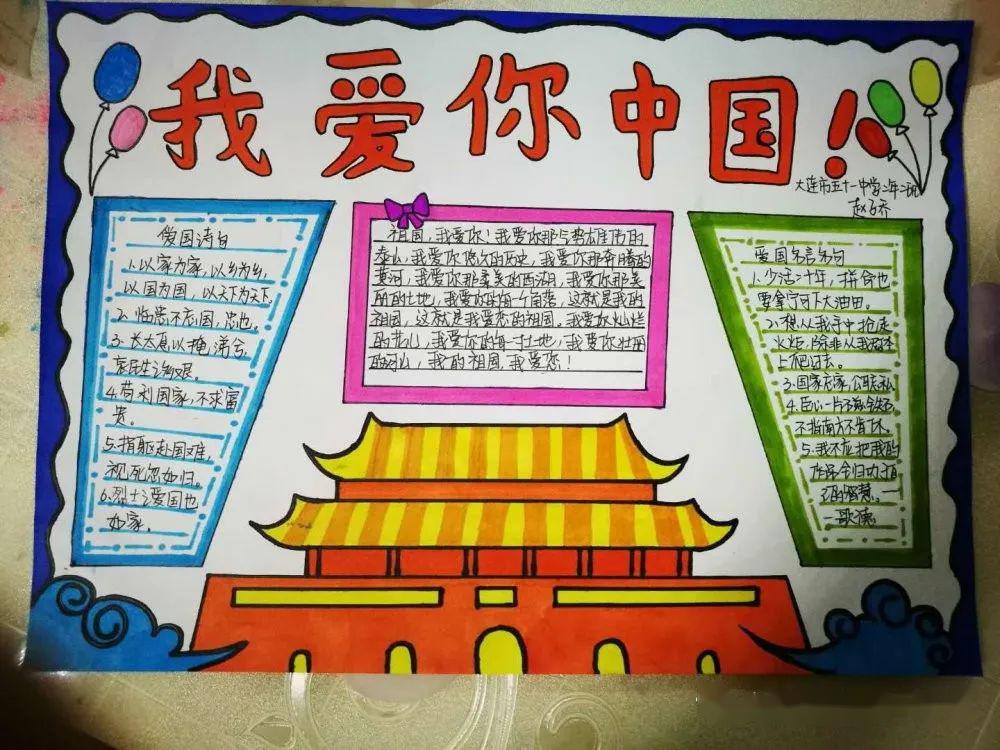 我爱你中国!
大连市五十一中学二年二班
赵子乔
爱国诗句
1.以家为家,以乡为乡,
以国为国,以天下为天下。
2.临患不忘国,忠也。
3.长太息以掩涕兮,
哀民生之多艰。
4.苟利国家,不求富
贵。
5.捐躯赴国难,
视死忽如归。
6.烈士之爱国也
如家。
祖国,我爱你!我爱你那气势雄伟的
泰山,我爱你悠久的历史,我爱你那奔腾的
黄河,我爱你那柔美的西湖,我爱你那美
丽的土地,我爱你的每一个角落,这就是我的
祖国,这就是我爱恋的祖国。我爱你灿烂
的花儿,我爱你的每一寸土地,我爱你壮丽
的河山,我的祖国,我爱恋!
爱国名言名句
1.少活二十年,拼命也
要拿下大油田。
2.想从我手中抢走
火炬,除非从我
上爬过去。
3.国家
4.臣心一片磁针石,
不指南方不肯休。
5.我不应把我的
作品全归功
的智慧。—
—歌德